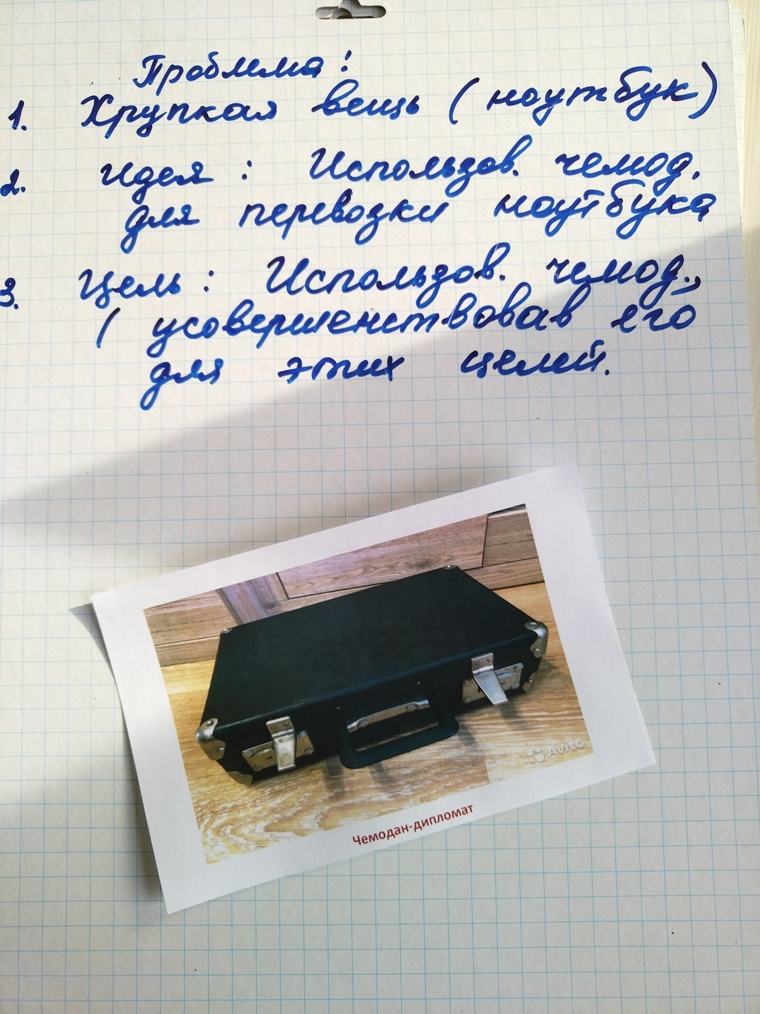 Проблема!
1. Хрупкая вещь (ноутбук)
2. Идея: Использов. чемод.
для перевозки ноутбука
3. Цель: Использов. чемод.,
( усовершенствовав его
для этих целей.
Avito
Чемодан-дипломат